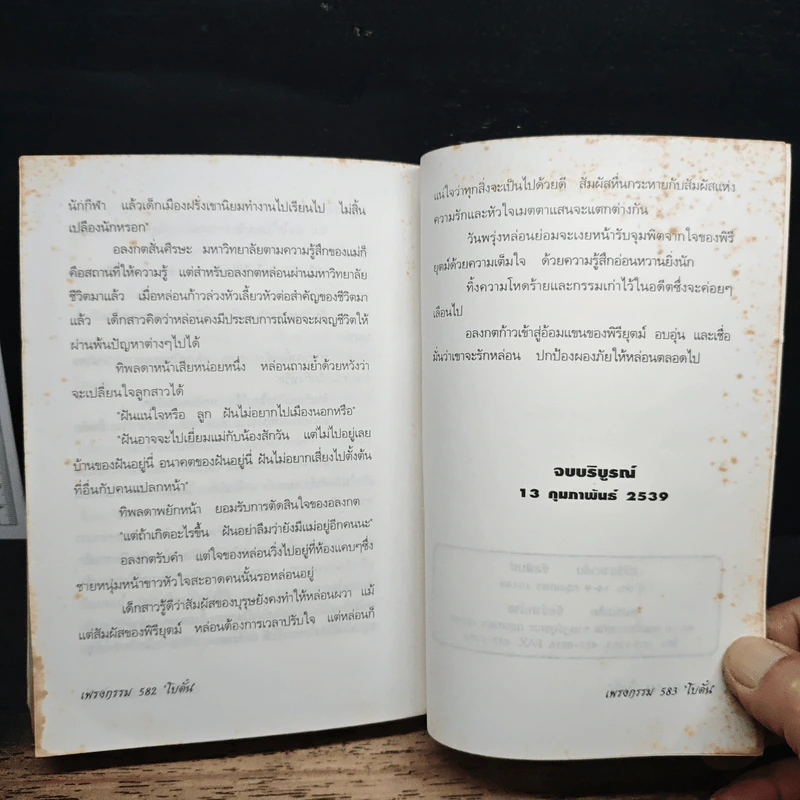 นักกีฬา แล้วเด็กเมืองฝรั่งเขานิยมทำงานไปเรียนไป ไม่สิ้น
เปลืองนักหรอก"
อลงกตสั่นศีรษะ มหาวิทยาลัยตามความรู้สึกของแม่ก็
คือสถานที่ให้ความรู้ แต่สำหรับอลงกตหล่อนผ่านมหาวิทยาลัย
ชีวิตมาแล้ว เมื่อหล่อนก้าวล่วงหัวเลี้ยวหัวต่อสำคัญของชีวิตมา
แล้ว เด็กสาวคิดว่าหล่อนคงมีประสบการณ์พอจะผจญชีวิตให้
ผ่านพ้นปัญหาต่างๆไปได้
ทิพลดาหน้าเสียหน่อยหนึ่ง หล่อนถามย้ำด้วยหวังว่า
จะเปลี่ยนใจลูกสาวได้
"ฝันแน่ใจหรือ ลูก ฝันไม่อยากไปเมืองนอกหรือ"
"ฝันอาจจะไปเยี่ยมแม่กับน้องสักวัน แต่ไม่ไปอยู่เลย
บ้านของฝันอยู่นี่ อนาคตของฝันอยู่นี่ ฝันไม่อยากเสี่ยงไปตั้งต้น
ที่อื่นกับคนแปลกหน้า"
ทิพลดาพยักหน้า ยอมรับการตัดสินใจของอลงกต
"แต่ถ้าเกิดอะไรขึ้น ฝันอย่าลืมว่ายังมีแม่อยู่อีกคนนะ"
อลงกตรับคำ แต่ใจของหล่อนวิ่งไปอยู่ที่ห้องแคบๆซึ่ง
ชายหนุ่มหน้าขาวหัวใจสะอาดคนนั้นรอหล่อนอยู่
เด็กสาวรู้ดีว่าสัมผัสของบุรุษยังคงทำให้หล่อนผวา แม้
แต่สัมผัสของพิรียุตม์ หล่อนต้องการเวลาปรับใจ แต่หล่อนก็
เพรงกรรม 582 'โบตั๋น'
แน่ใจว่าทุกสิ่งจะเป็นไปด้วยดี สัมผัสหื่นกระหายกับสัมผัสแห่ง
ความรักและหัวใจเมตตาแสนจะแตกต่างกัน
วันพรุ่งหล่อนย่อมจะเงยหน้ารับจุมพิตจากใจของพิรี
ยุตม์ด้วยความเต็มใจ ด้วยความรู้สึกอ่อนหวานยิ่งนัก
ทิ้งความโหดร้ายและกรรมเก่าไว้ในอดีตซึ่งจะค่อยๆ
เลือนไป
อลงกตก้าวเข้าสู่อ้อมแขนของพิรียุตม์ อบอุ่น และเชื่อ
มั่นว่าเขาจะรักหล่อน ปกป้องผองภัยให้หล่อนตลอดไป
จบบริบูรณ์
13 กุมภาพันธ์ 2539
เพรงกรรม 583 'โบตั๋น'